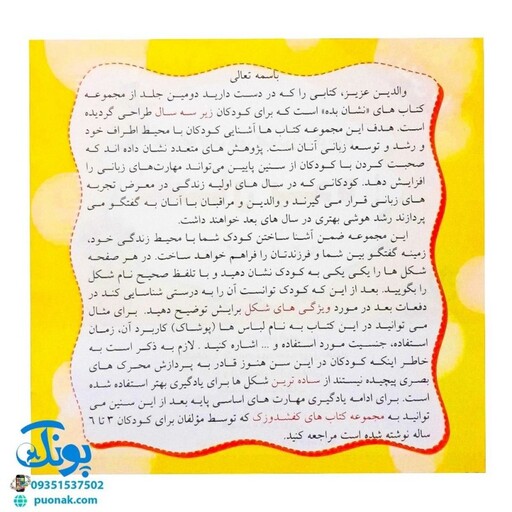 باسمه تعالی
والدین عزیز، کتابی را که در دست دارید دومین جلد از مجموعه
کتاب های «نشان بده» است که برای کودکان زیر سه سال طراحی گردیده
است. هدف این مجموعه کتاب ها آشنایی کودکان با محیط اطراف خود
و رشد و توسعه زبانی آنان است. پژوهش های متعدد نشان داده اند که
صحبت کردن با کودکان از سنین پایین می‌تواند مهارت‌های زبانی را
افزایش دهد. کودکانی که در سال های اولیه زندگی در معرض تجربه
های زبانی قرار می گیرند و والدین و مراقبان با آنان به گفتگو می
پردازند رشد هوشی بهتری در سال های بعد خواهند داشت.
این مجموعه ضمن آشنا ساختن کودک شما با محیط زندگی خود،
زمینه گفتگو بین شما و فرزندتان را فراهم خواهد ساخت. در هر صفحه
شکل ها را یکی یکی به کودک نشان دهید و با تلفظ صحیح نام شکل
را بگویید. بعد از این که کودک توانست آن را به درستی شناسایی کند در
دفعات بعد در مورد ویژگی های شکل برایش توضیح دهید. برای مثال
می توانید در این کتاب به نام لباس ها (پوشاک) کاربرد آن، زمان
استفاده، جنسیت مورد استفاده و ... اشاره کنید . لازم به ذکر است به
خاطر اینکه کودکان در این سن هنوز قادر به پردازش محرک های
بصری پیچیده نیستند از ساده ترین شکل ها برای یادگیری بهتر استفاده شده
است. برای ادامه یادگیری مهارت های اساسی پایه بعد از این سنین می
توانید به مجموعه کتاب های کفشدوزک که توسط مؤلفان برای کودکان ۳ تا ۶
ساله نوشته شده است مراجعه کنید.
پونک
09351537502
puonak.com